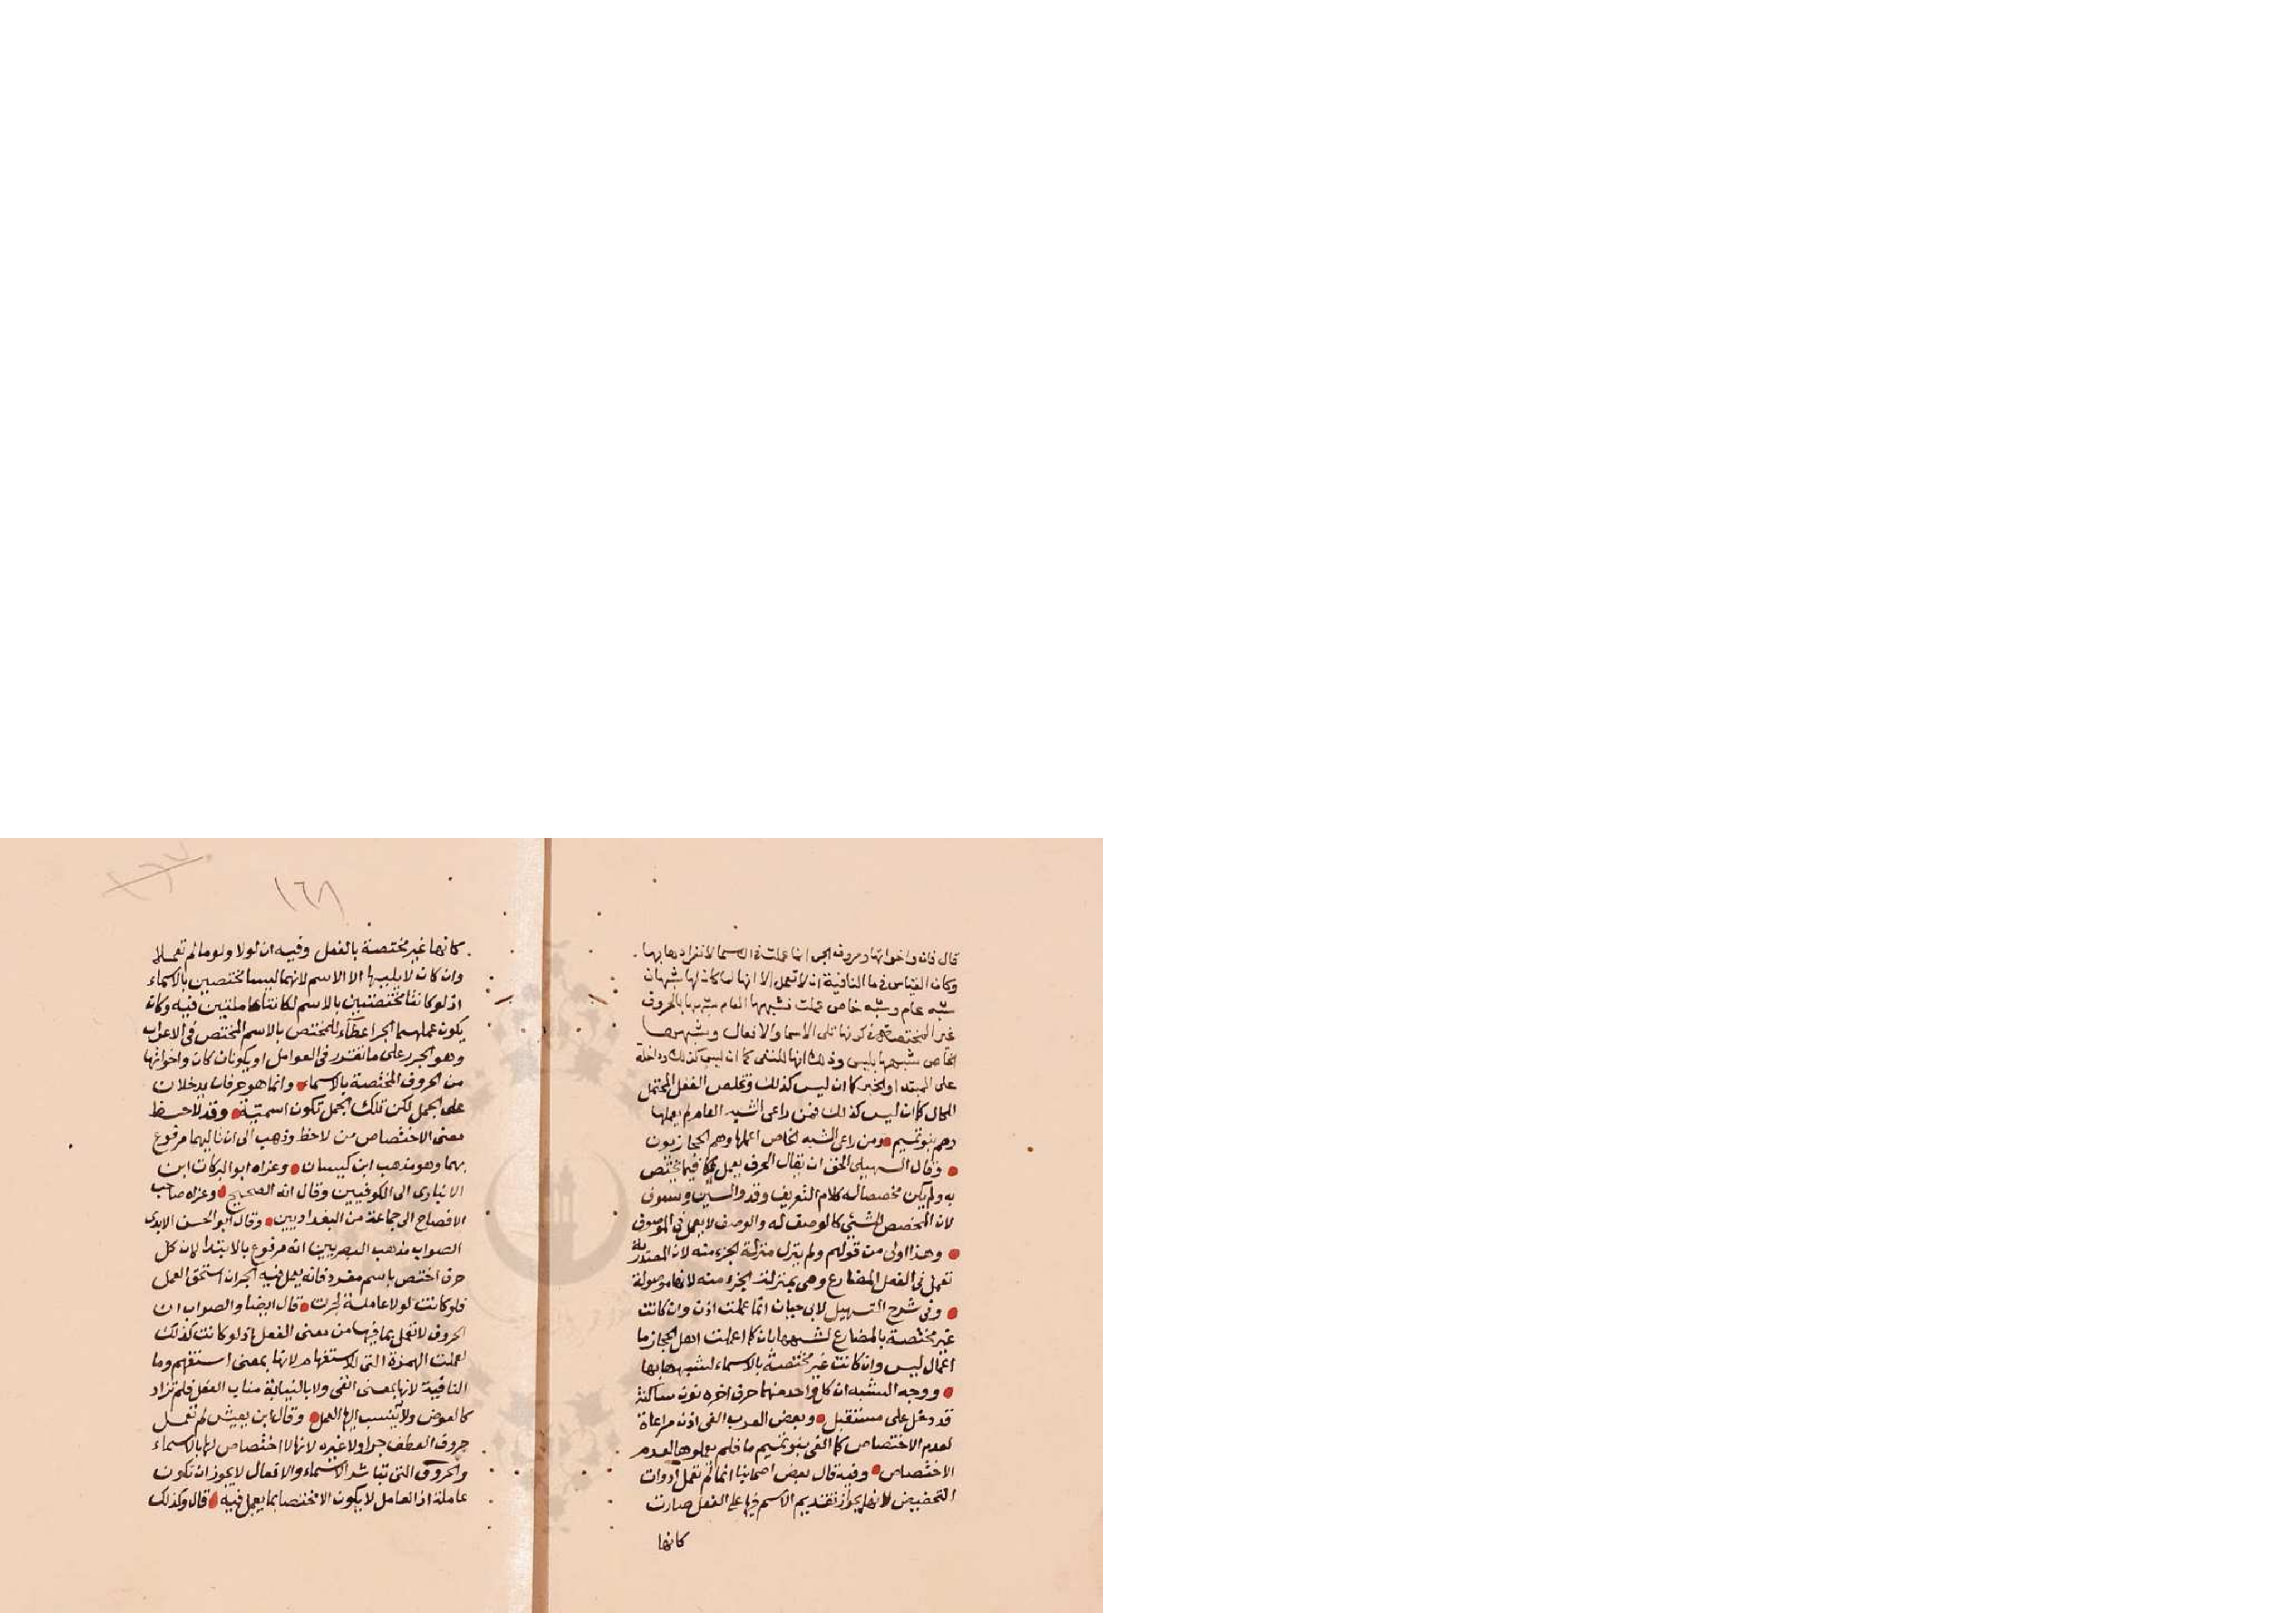 قال فان واخواتها وحروف الجر انما عملت في الاسما لانفرادها بها
وكان القياس في ما النافية ان لا تعمل الا انها لما كان لها شبهان
شبه عام وشبه خاص عملت فشبهها العام شبهها بالحروف
غير المختصة في كونها تلى الاسما والافعال وشبهها
الخاص شبهها بليس وذلك انها للنفى كما ان ليس كذلك وداخلة
على المبتدا والخبر كما ان ليس كذلك وتخلص الفعل المحتمل
للحال كما ان ليس كذلك فمن راعى الشبه العام لم يعملها
وهم بنو تميم ومن راعى الشبه الخاص اعملها وهم الحجازيون
وقال السهيلى الحق ان يقال الحرف يعمل فيما يختص
به ولم يكن مخصصا له كلام التعريف وقد والسين وسوف
لان المخصص للشيء كالوصف له والوصف لا يعمل فى الموصوف
وهذا اولى من قولهم ولم يتنزل منزلة الجزء منه لان المصدرية
تعمل فى الفعل المضارع وهى بمنزلة الجزء منه لانها موصولة
وفى شرح التسهيل لابى حيان انما عملت اذن وان كانت
غير مختصة بالمضارع لشبهها بان كما اعملت اهل الحجاز ما
اعمال ليس وان كانت غير مختصة بالاسماء لشبهها بها
ووجه الشبه ان كل واحد منهما حرف اخره نون ساكنة
قد دخل على مستقبل وبعض العرب الغى اذن مراعاة
لعدم الاختصاص كما الغى بنو تميم ما فلم يعملوها لعدم
الاختصاص وفيه قال بعض اصحابنا انما لم تعمل ادوات
التحضيض لانها يجوز تقديم الاسم فيها على الفعل صارت
كانها
١٦٨
كانها غير مختصة بالفعل وفيه ان لولا ولوما لم تعملا
وان كان لا يليها الا الاسم لانهما ليسا مختصين بالاسماء
اذ لو كانتا مختصتين بالاسم لكانتا عاملتين فيه وكان
يكون عملهما الجر اعطاء للمختص بالاسم المختص فى الاعراب
وهو الجر على ما تقرر فى العوامل او يكونان كان واخواتها
من الحروف المختصة بالاسماء وانما هو حرفان يدخلان
على الجمل لكن تلك الجمل تكون اسمية وقد لاحظ
معنى الاختصاص من لاحظ وذهب الى ان تاليهما مرفوع
بهما وهو مذهب ابن كيسان وعزاه ابو البركات ابن
الانبارى الى الكوفيين وقال انه الصحيح وعزاه صاحب
الافصاح الى جماعة من البغداديين وقال ابو الحسن الابدى
الصواب مذهب البصريين انه مرفوع بالابتدا لان كل
حرف اختص باسم مفرد فانه يعمل فيه الجر ان استحق العمل
فلو كانت لولا عاملة لجرت قال ايضا والصواب ان
الحروف لا تعمل بما فيها من معنى الفعل اذ لو كانت كذلك
لعملت الهمزة التى للاستفهام لانها بمعنى استفهم وما
النافية لانها بمعنى انفى ولا بالنيابة مناب الفعل فلم تزاد
كالعوض ولا ينسب اليها العمل وقال ابن يعيش لم تعمل
حروف العطف جرا ولا غيره لانها لا اختصاص لها بالاسماء
والحروف التى تباشر الاسماء والافعال لا يجوز ان تكون
عاملة اذ العامل لا يكون الا مختصا بما يعمل فيه قال وكذلك